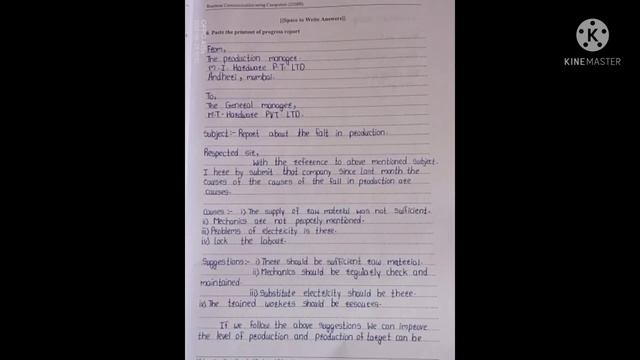 Business Communication using Computers (22009)
[[Space to Write Answers]]
6 Paste the printout of progress report
From,
The production manager.
M.I. Hardware P.T. LTD
Andheri, mumbai.
To,
The General manager,
M.T. Hardware PVT LTD.
Subject:- Report about the falt in production.
Respected sir,
With the reference to above mentioned subject.
I here by submit that company since last month the
causes of the causes of the fall in production are
causes.
Causes:- i) The supply of raw material was not sufficient.
ii) Mechanics are not properly mentioned.
iii) Problems of electricity is there.
iv) lack the labour.
Suggestions:- i) There should be sufficient raw material.
ii) Mechanics should be regularly check and
maintained.
iii) Substitute electricity should be there.
iv) The trained workers should be resources.
If we follow the above suggestions. We can improve
the level of production and production of target can be
KINEMASTER